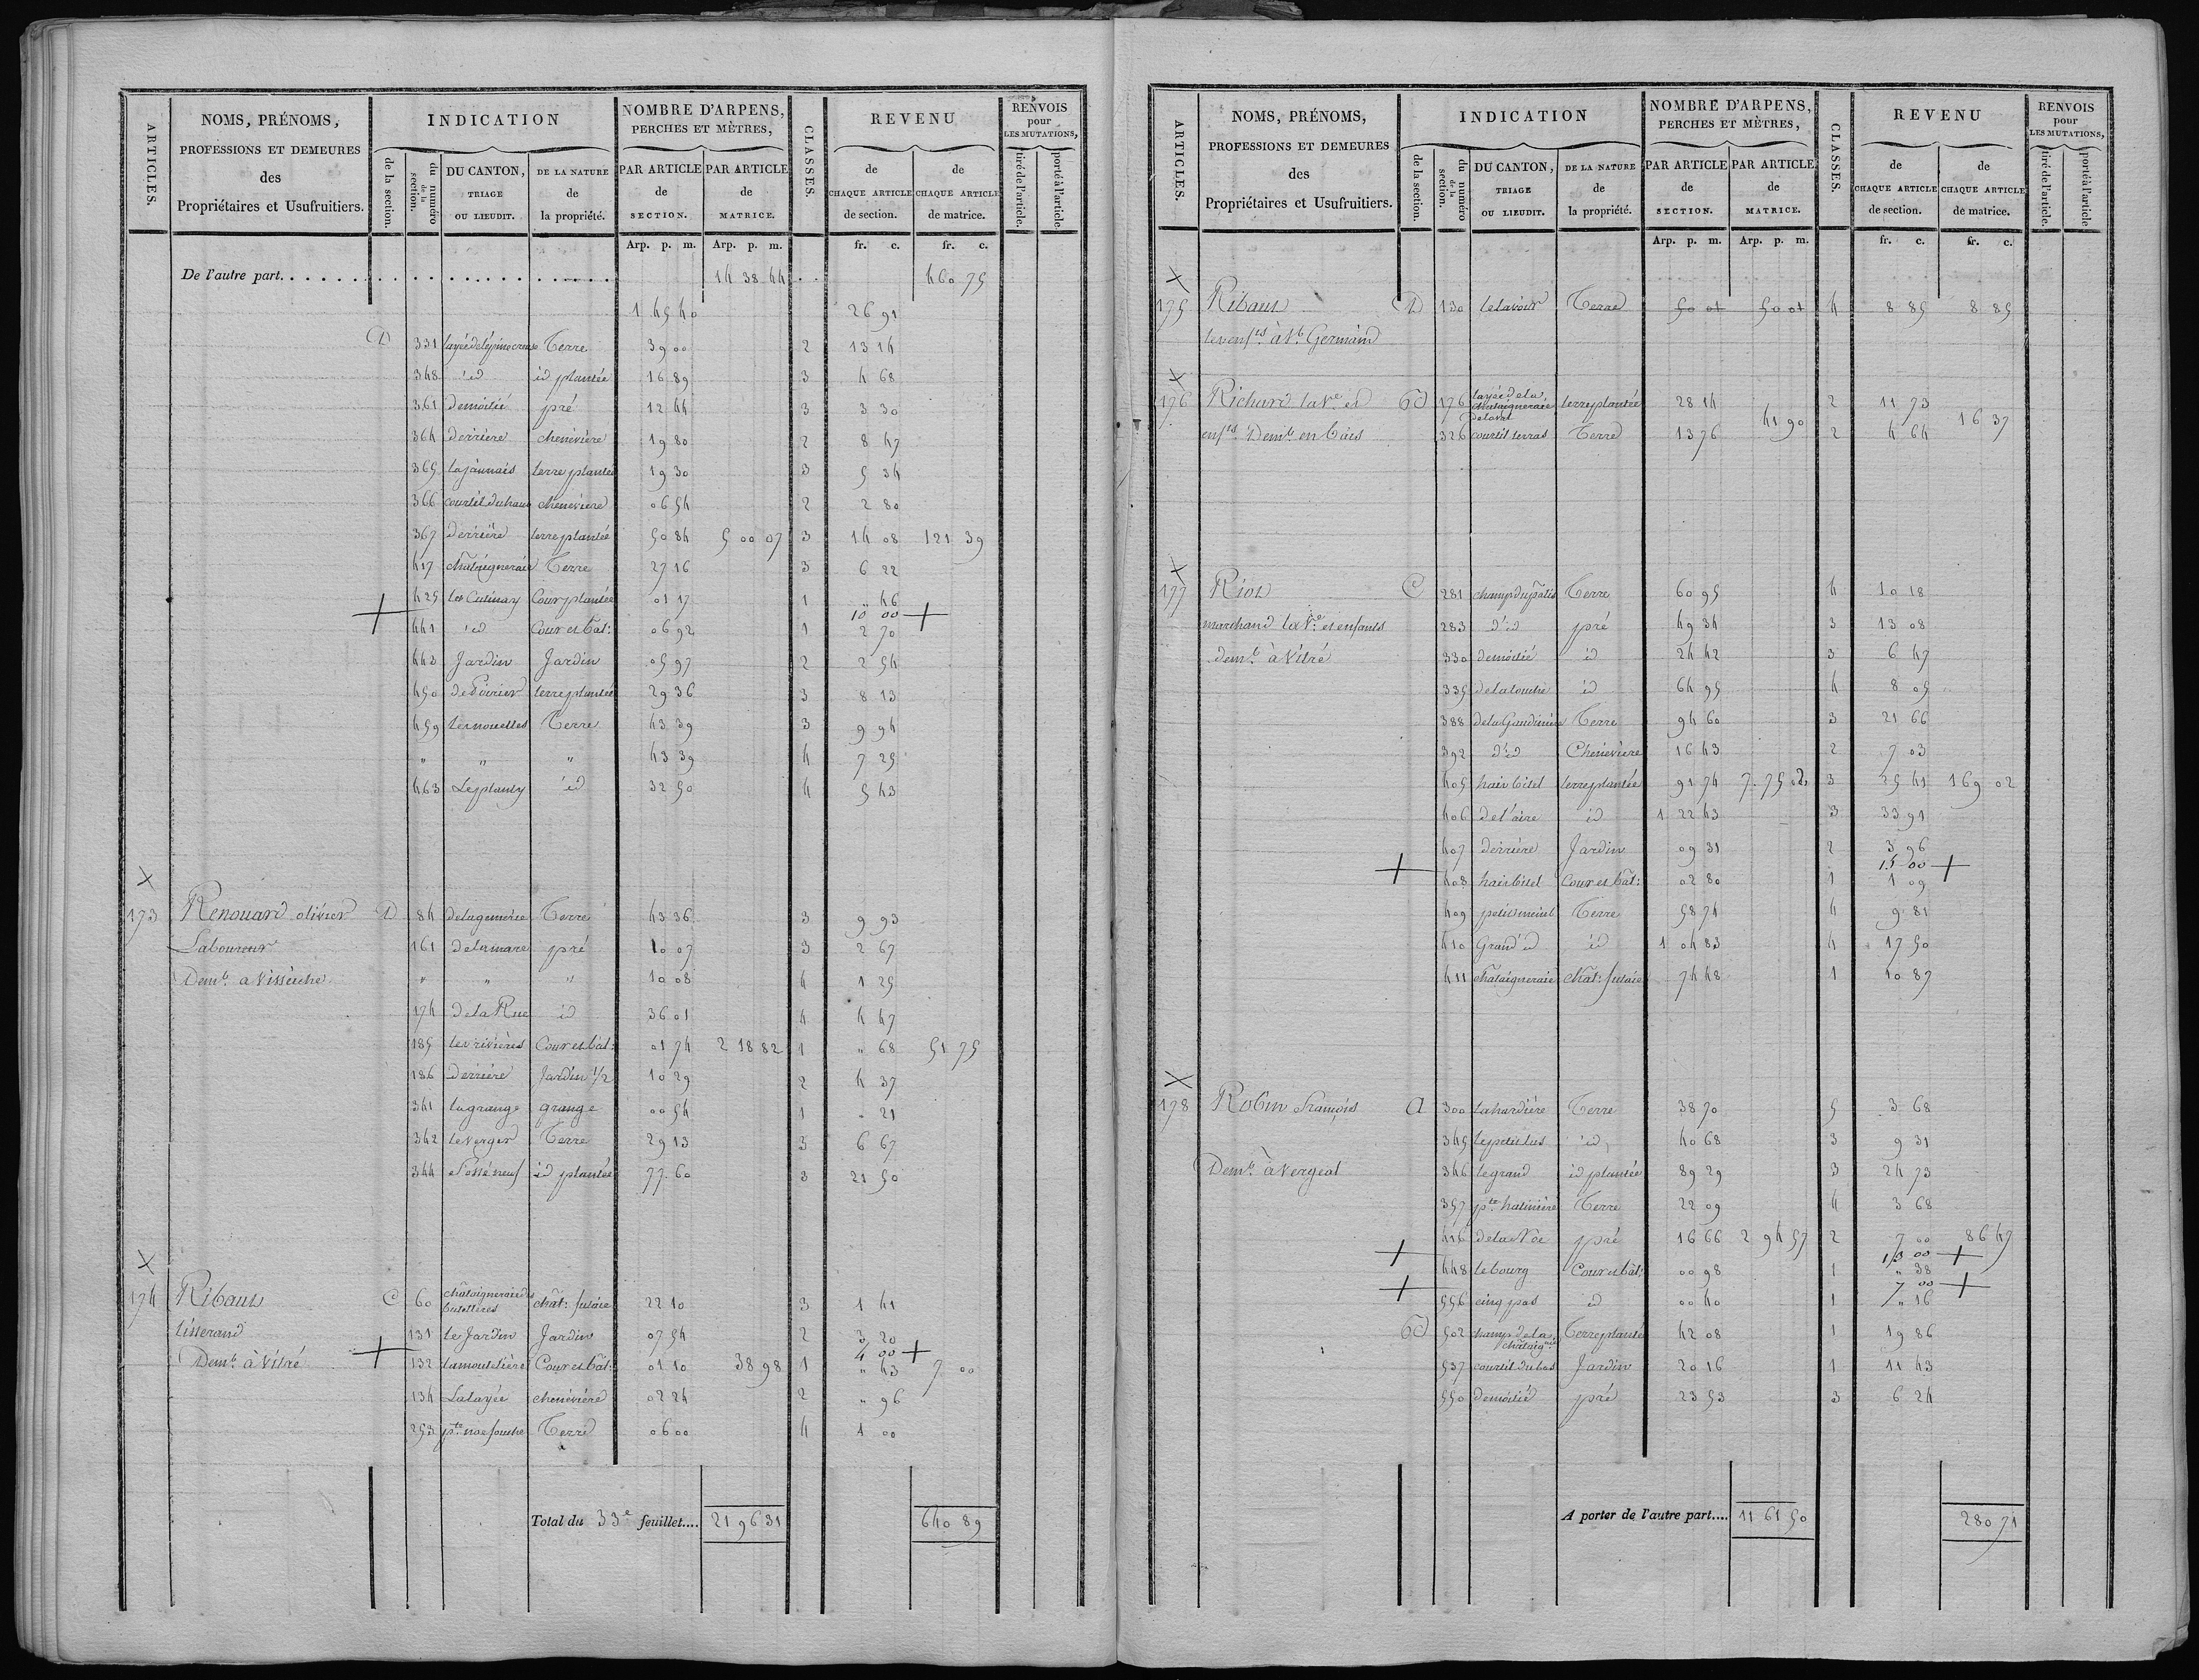 ARTICLES.
NOMS, PRÉNOMS,
PROFESSIONS ET DEMEURES
des
Propriétaires et Usufruitiers.
INDICATION
de la section.
du numéro de la section.
DU CANTON,
TRIAGE
OU LIEUDIT.
DE LA NATURE
de
la propriété.
NOMBRE D'ARPENS,
PERCHES ET MÈTRES,
PAR ARTICLE
de
SECTION.
PAR ARTICLE
de
MATRICE.
CLASSES.
REVENU
de
CHAQUE ARTICLE
de section.
de
CHAQUE ARTICLE
de matrice.
RENVOIS
pour
LES MUTATIONS,
tiré de l'article.
porté à l'article.
Arp. p. m. Arp. p. m. fr. c. fr. c.
De l'autre part. 14 38 44 460 75
1 45 40 26 91
D 331 Terre 39 00 2 13 14
348 id id plantée 16 89 3 4 68
361 demoitié pré 12 44 3 3 30
364 derrière chenevière 19 80 2 8 47
365 lajannais terre plantée 19 30 3 5 34
366 courtil duhaut chenevière 06 54 2 2 80
367 derrière terre plantée 50 84 5 00 07 3 14 08 121 39
417 chataigneraie Terre 27 16 3 6 22
425 Cour plantée 01 17 1 " 46
10 00
441 id Cour et bat: 06 92 1 2 70
442 Jardin Jardin 05 97 2 2 54
450 de Poirier terre plantée 29 36 3 8 13
459 lesnouettes Terre 43 39 3 9 94
" " " 43 39 4 7 25
463 id 32 50 4 5 43
173 Renouard olivier D 84 Terre 43 36 3 9 93
Laboureur 161 delamare pré 10 07 3 2 67
Demt. a Visseiche " " " 10 08 4 1 25
174 dela Rue id 36 01 4 4 47
185 lesrivières Cour et bat: 01 74 2 18 82 1 " 68 51 75
186 derrière Jardin 1/2 10 29 2 4 37
341 lagrange grange 00 54 1 " 21
342 leverger Terre 29 13 3 6 67
344 id plantée 77 60 3 21 50
174 Ribaut C 60 chataigneraie des chât: futaie 22 10 3 1 41
tisserand 131 le Jardin Jardin 07 54 2 3 20
4 00
Demt. à Vitré 132 Cour et bat: 01 10 38 98 1 " 43 7 00
134 Lalayée chenevière 02 24 2 " 96
253 Terre 06 00 4 1 00
Total du 33e feuillet.... 21 96 31 640 89
ARTICLES.
NOMS, PRÉNOMS,
PROFESSIONS ET DEMEURES
des
Propriétaires et Usufruitiers.
INDICATION
de la section.
du numéro de la section.
DU CANTON,
TRIAGE
OU LIEUDIT.
DE LA NATURE
de
la propriété.
NOMBRE D'ARPENS,
PERCHES ET MÈTRES,
PAR ARTICLE
de
SECTION.
PAR ARTICLE
de
MATRICE.
CLASSES.
REVENU
de
CHAQUE ARTICLE
de section.
de
CHAQUE ARTICLE
de matrice.
RENVOIS
pour
LES MUTATIONS,
tiré de l'article.
porté à l'article
Arp. p. m. Arp. p. m. fr. c. fr. c.
175 Ribaut D 130 Terre 50 01 50 01 4 8 85 8 85
les enfts. à St. Germain
176 Richard la Ve. et 176 layée dela chataigneraie terre plantée 28 14 2 11 73
41 90 16 37
enfts. Demt. en bais 326 courtil Terre 13 76 2 4 64
177 Riot C 281 champ dupatis Terre 60 95 4 10 18
marchand la Ve. et enfants 283 d'id pré 49 34 3 13 08
demt. à Vitré 330 demoitié id 24 42 3 6 47
335 delatouche id 64 95 4 8 05
388 Terre 94 60 3 21 66
392 d'id Chenevière 16 43 2 7 03
405 terre plantée 91 74 7. 75 02 3 25 41 169 02
406 de l'aire id 1 22 43 3 33 91
407 derrière Jardin 09 31 2 3 96
15 00
408 Cour et bât: 02 80 1 1 09
409 Terre 58 74 4 9 81
410 Grand id id 1 04 83 4 17 50
411 chataigneraie chât: futaie 74 48 1 10 87
178 Robin François A 300 lahardière Terre 38 70 5 3 68
345 id 40 68 3 9 31
Demt. à Vergeal 346 legrand id plantée 89 29 3 24 73
357 Terre 22 09 4 3 68
416 dela Noe pré 16 66 2 94 57 2 7 00 86 47
13 00
448 lebourg Cour et bât: 00 98 1 " 38
7 00
556 cinq pas id 00 40 1 " 16
502 champ dela chataigie. Terre plantée 42 08 1 19 86
537 courtil dubas Jardin 20 16 1 11 43
550 demoitié pré 23 53 3 6 24
A porter de l'autre part.... 11 61 50 280 71